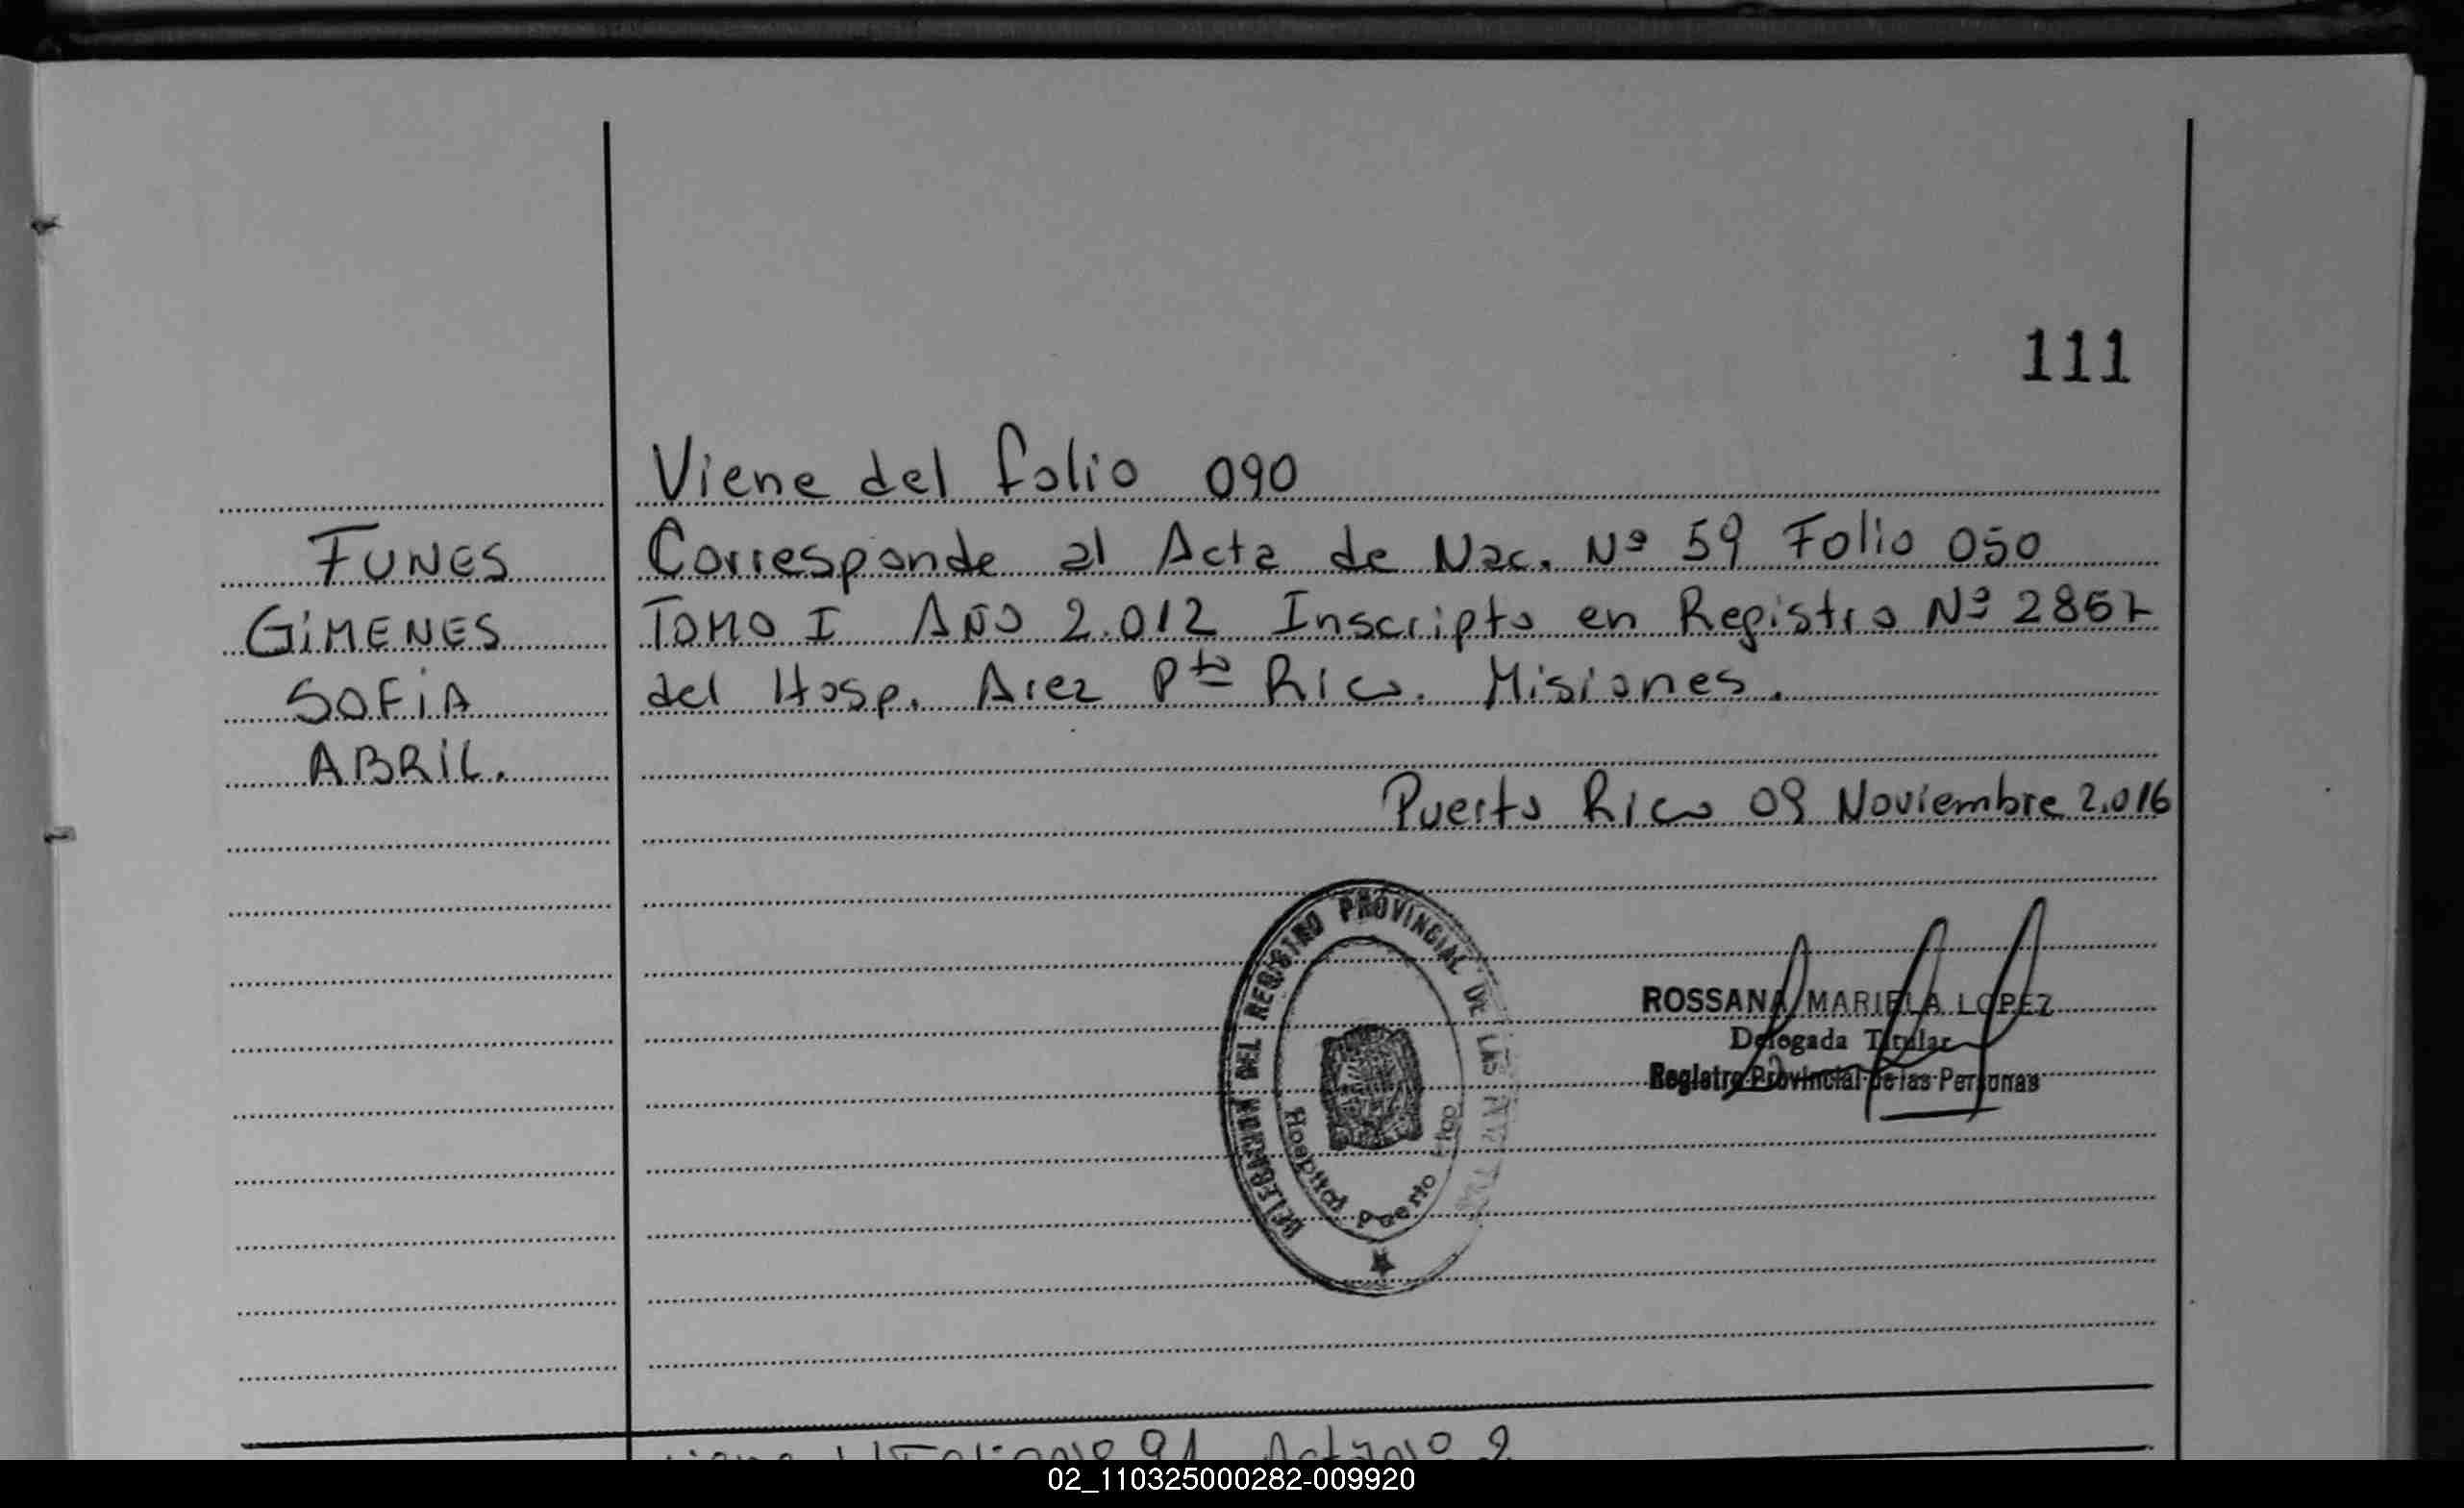 111
Viene del folio 090
FUNES
Corresponde al Acta de Nac. Nº 59 Folio 050
GiMENES
TOMO I AÑO 2.012 Inscripto en Registro Nº 2857
SOFiA
del Hosp. Area Pto Rico. Misiones.
ABRiL.
Puerto Rico 09 Noviembre 2.016
DELEGACION DEL REGISTRO PROVINCIAL DE LAS
Hospital Puerto Rico
ROSSANA MARIELA LOPEZ
Delegada Titular
Registro Provincial de las Personas
91 Acta Nº 2
02_110325000282-009920